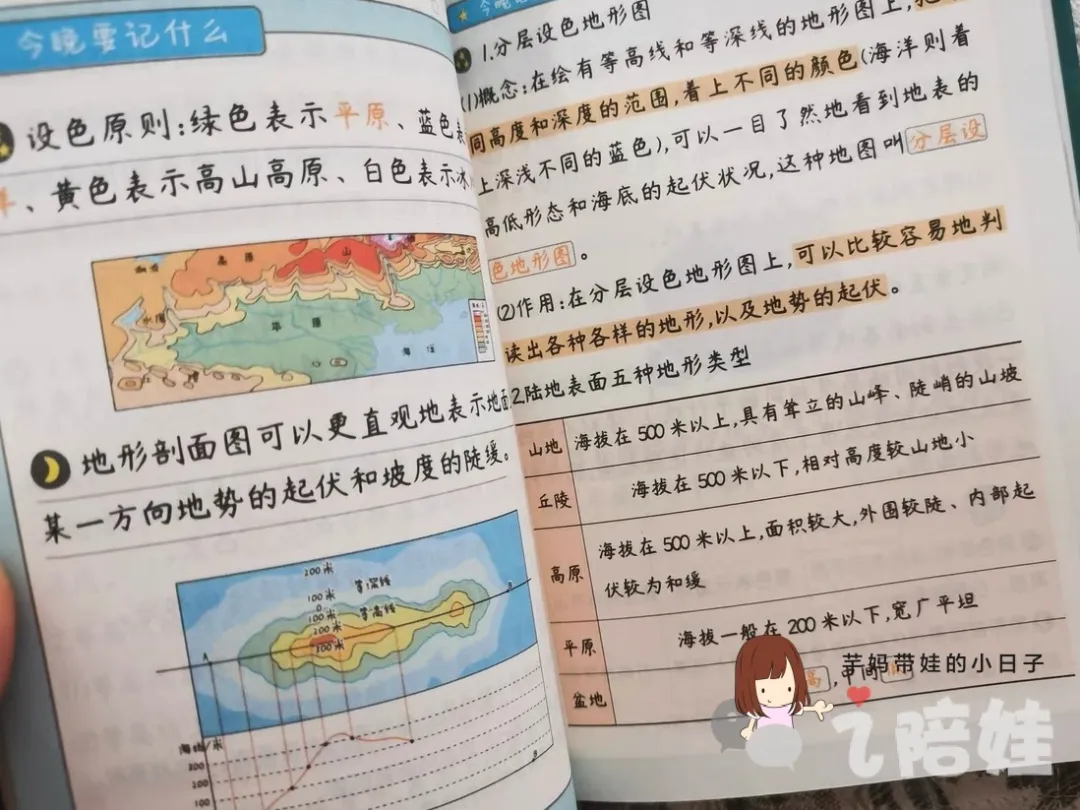 今晚要记什么
设色原则:绿色表示平原、蓝色表
洋、黄色表示高山高原、白色表示冰
高原
山
平原
海洋
地形剖面图可以更直观地表示地面
某一方向地势的起伏和坡度的陡缓。
200米
100米
0
100米
200米
300米
等深线
等高线
A
B
海拔/米
300
200
100
B
1.分层设色地形图
(1)概念:在绘有等高线和等深线的地形图上,把
同高度和深度的范围,着上不同的颜色(海洋则着
上深浅不同的蓝色),可以一目了然地看到地表的
高低形态和海底的起伏状况,这种地图叫分层设
色地形图。
(2)作用:在分层设色地形图上,可以比较容易地判
读出各种各样的地形,以及地势的起伏。
2.陆地表面五种地形类型
山地 海拔在500米以上,具有耸立的山峰、陡峭的山坡
丘陵 海拔在500米以下,相对高度较山地小
高原 海拔在500米以上,面积较大,外围较陡、内部起
伏较为和缓
平原 海拔一般在200米以下,宽广平坦
盆地 高,中间
芋妈带娃的小日子
陪娃